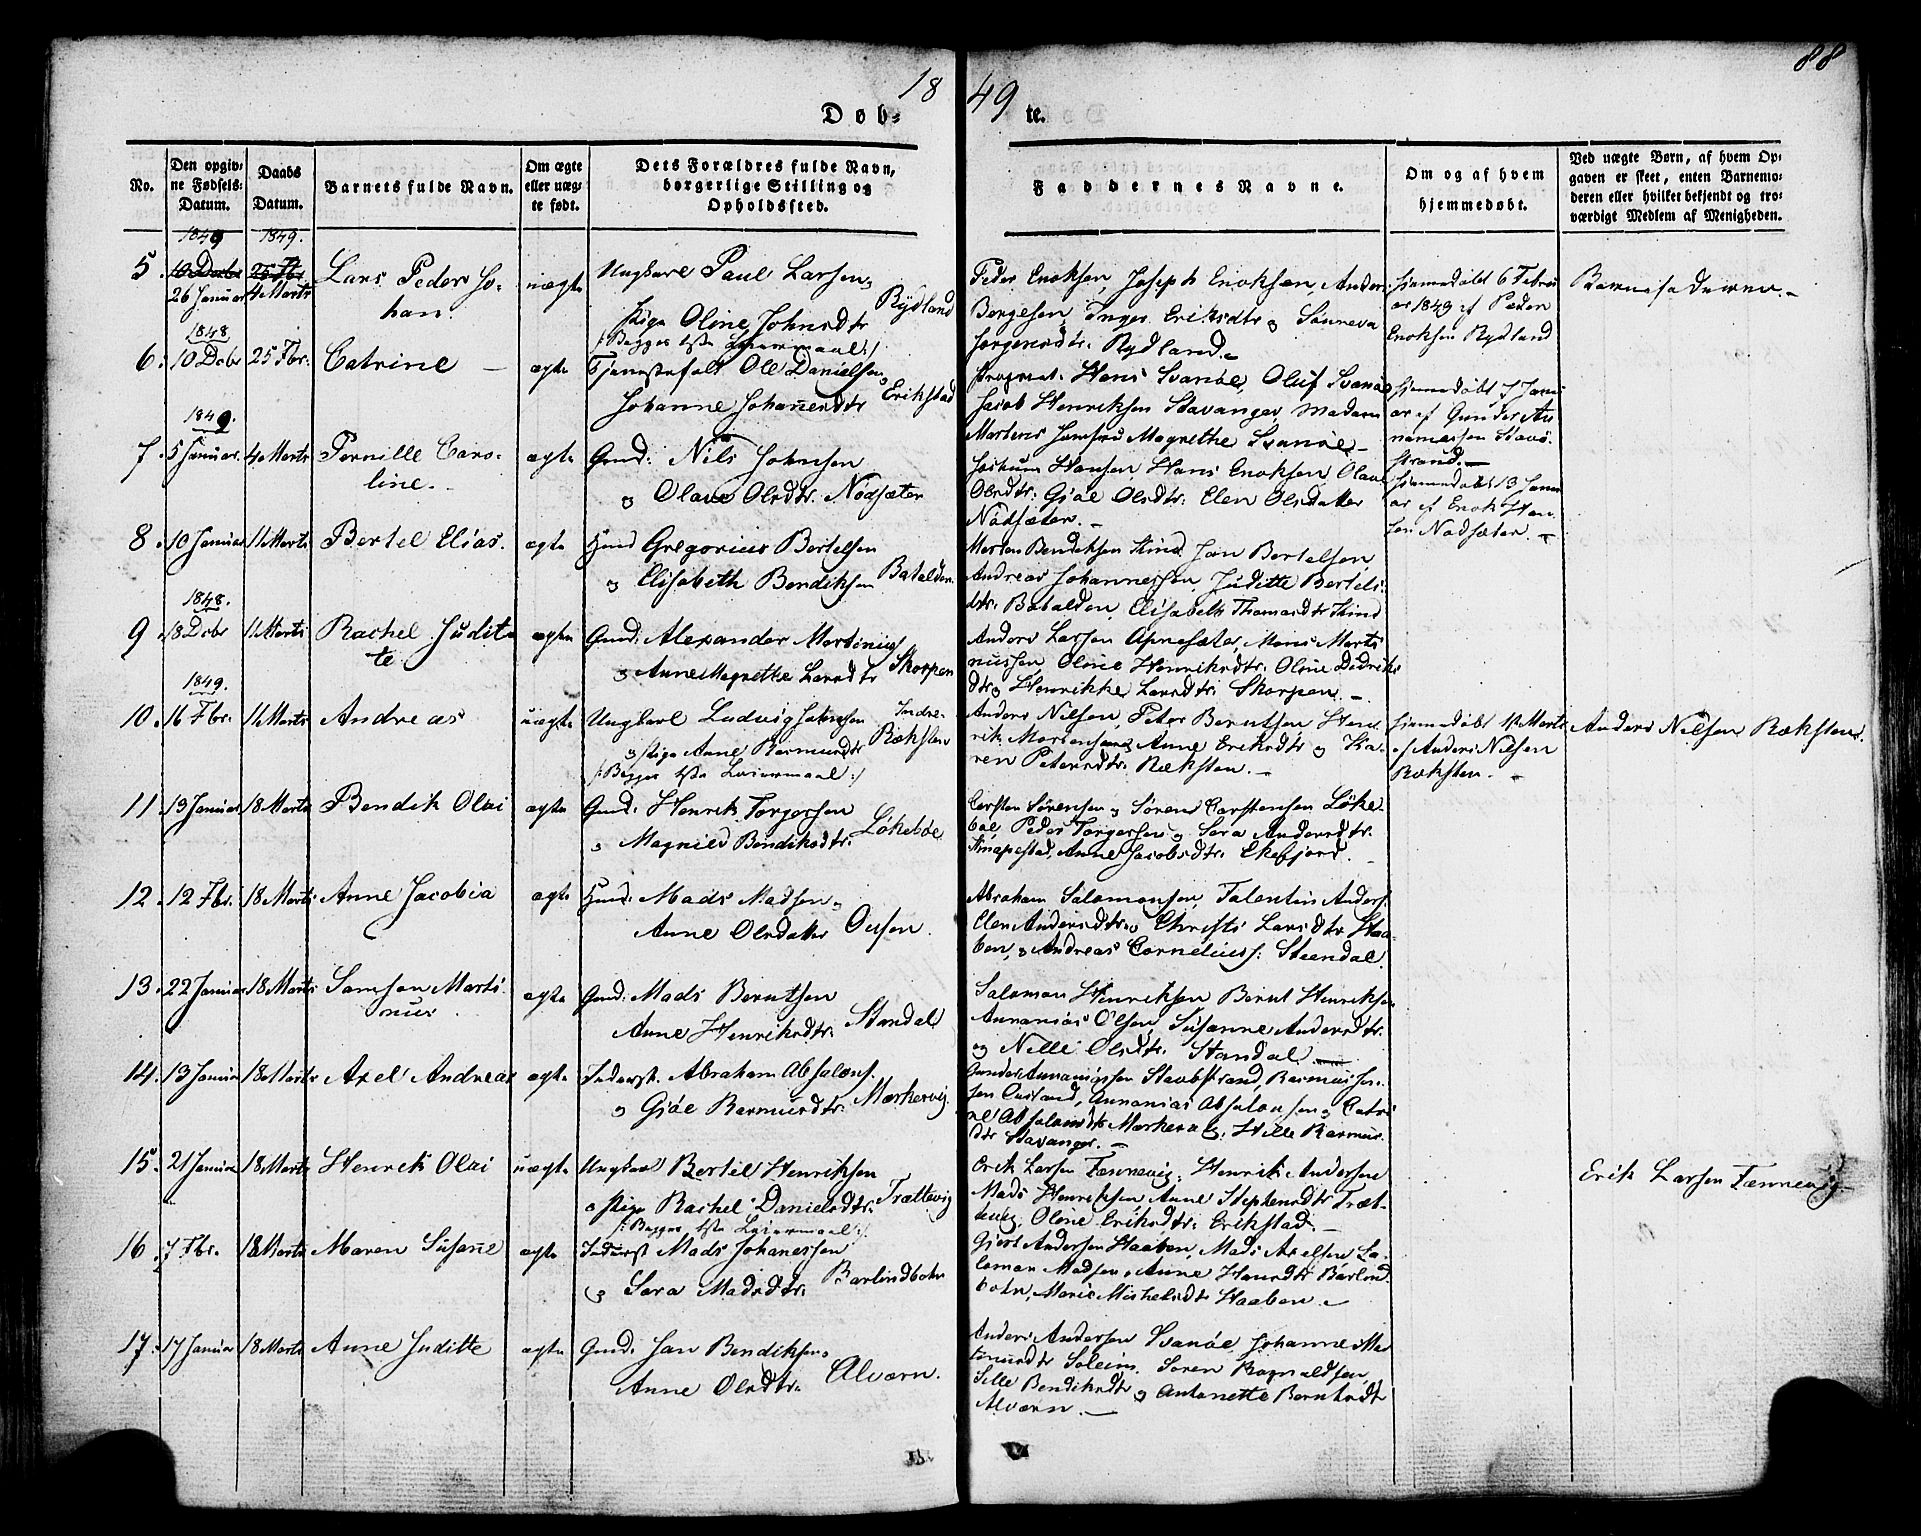 88
18 49
Døb- te.
No.
Den opgiv-
ne Fødsels-
Datum.
Daabs
Datum.
Barnets fulde Navn.
Om ægte
eller uæg-
te født.
Dets Forældres fulde Navn,
borgerlige Stilling og
Opholdssted.
Faddernes Navne.
Om og af hvem
hjemmedøbt.
Ved uægte Børn, af hvem Op-
gaven er skeet, enten Barnemo-
deren eller hvilket bekjendt og tro-
værdigt Medlem af Menigheden.
1849 1849.
5. 26 Januar 4 Marts Lars Peder Jo-
han.
uægte
Ungkarl Paul Larsen
Pige Oline Johnsdtr Rydland
/: Begges 1ste Leiermaal :/
Peder Enoksen, Joseph Enoksen, Anders
Børgesen, Inger Eriksdtr og Sønneva
Jørgensdtr. Rydland.
Hjemmedøbt 6 Febru
ar 1849 af Peder
Enoksen Rydland
Barnefaderen.
1848
6. 10 Decbr 25 Fbr. Catrine ægte
Tjenestefolk Ole Danielsen
Johanne Johannesdtr Erikstad
Hans Svanøe, Oluf Svanøe
Jacob Henriksen Stavanger Madam
Martens Jomfru Magrethe Svanøe
Hjemmedøbt 7 Janu
ar af Gunder An
naniassen Stavs-
strand.
1849.
7. 5 Januar. 4 Marts Pernille Caro-
line.
ægte
Gmd: Nils Johnsen
og Olave Olsdtr. Nødsæter
Jockum Hansen, Hans Enoksen, Olave
Olsdtr: Gjøe Olsdtr: Elen Olsdatter
Nødsæter.
Hjemmedøbt 13 Janu
ar af Enok Han
sen Nødsæter.
8. 10 Januar 11 Marts Bertel Elias. ægte
Hmd Gregorius Bertelsen
og Elisabeth Bendiksen Batalden.
Morten Bendiksen Kind Jan Bertelsen,
Andreas Johannessen Juditte Bertels-
dtr. Batalden, Elisabeth Thomasdtr Kind
1848.
9. 18 Decbr 11 Marts Rachel Judit-
te
ægte
Gmd: Alexander Martinius
og Anne Magrethe Larsdtr Skorpen
Anders Larsen Apnesæter, Mons Marti
nussen, Oline Henriksdtr. Oline Didriks
dtr og Henrikke Larsdtr. Skorpen.
1849.
10. 16 Fbr. 11 Marts Andreas uægte
Ungkarl Ludvig Johnsen Indre-
og Pige Anne Rasmusdtr Ræksten
/: Begges 1ste Leiermaal :/
Anders Nilsen, Peter Berntsen, Hen
rik Mortensen, Anne Eriksdtr og Ka-
ren Petersdtr. Ræksten.
Hjemmedøbt 1 Marts
af Anders Nilsen
Ræksten.
Anders Nilsen Ræksten.
11. 19 Januar 18 Marts Bendik Olai ægte
Gmd: Henrik Torgersen
og Magnild Bendiksdtr. Løkebøe
Carsten Sørensen og Søren Carstensen Løke-
bøe, Peder Torgersen og Sara Andersdtr.
Knapestad, Anne Jacobsdtr. Ekefjord.
12. 12 Fbr. 18 Marts Anne Jacobia ægte
Hmd: Mads Madsen
Anne Olsdatter Ousen.
Abraham Salomonsen, Falentin Anders.
Elen Andersdtr. Christi Larsdtr Haa-
ben, og Andreas Corneliuss: Steendal.
13. 22 Januar 18 Marts Samson Marti-
nus
ægte
Gmd: Mads Berntsen
Anne Henriksdtr. Standal
Salomon Henriksen Bernt Henriksen
Annanias Olsen, Susanne Andersdtr.
og Nille Olsdtr. Standal
14. 13 Januar 18 Marts Axel Andreas ægte
Inderst. Abraham Absalons.
og Gjøe Rasmusdtr. Markevig.
Gunder Annaniassen Stavsstrand, Rasmus
Annanias Absalonsen og Catri
ne Absalonsdtr Markevig. Hille Rasmus
dtr Stavanger.
15. 21 Januar 18 Marts Henrik Olai uægte
Ungkarl Bertel Henriksen
og Pige Rachel Danielsdtr. Trættevig
/: Begges 1ste Leiermaal :/
Erik Larsen Fænnevig. Henrik Andersen
Mads Henriksen Anne Stephensdtr Træt-
tevig. Oline Eriksdtr. Erikstad.
Erik Larsen Fænnevig
16. 7 Fbr. 18 Marts Maren Susane ægte
Inderst Mads Johanessen
og Sara Madsdtr. Barlindbotn
Giert Andersen Haaben, Mads Axelsen, Sa-
lomon Madsen, Anne Hansdtr Barlind-
botn, Marie Michelsdtr Haaben.
17. 17 Januar 18 Marts Anne Juditte ægte
Gmd. Jan Bendiksen
Anne Olsdtr. Alværn.
Anders Andersen Svanøe, Johanne
Soleim. Søren Rognaldsen,
Sille Bendiksdtr og Antonette Berntsdtr
Alværn.